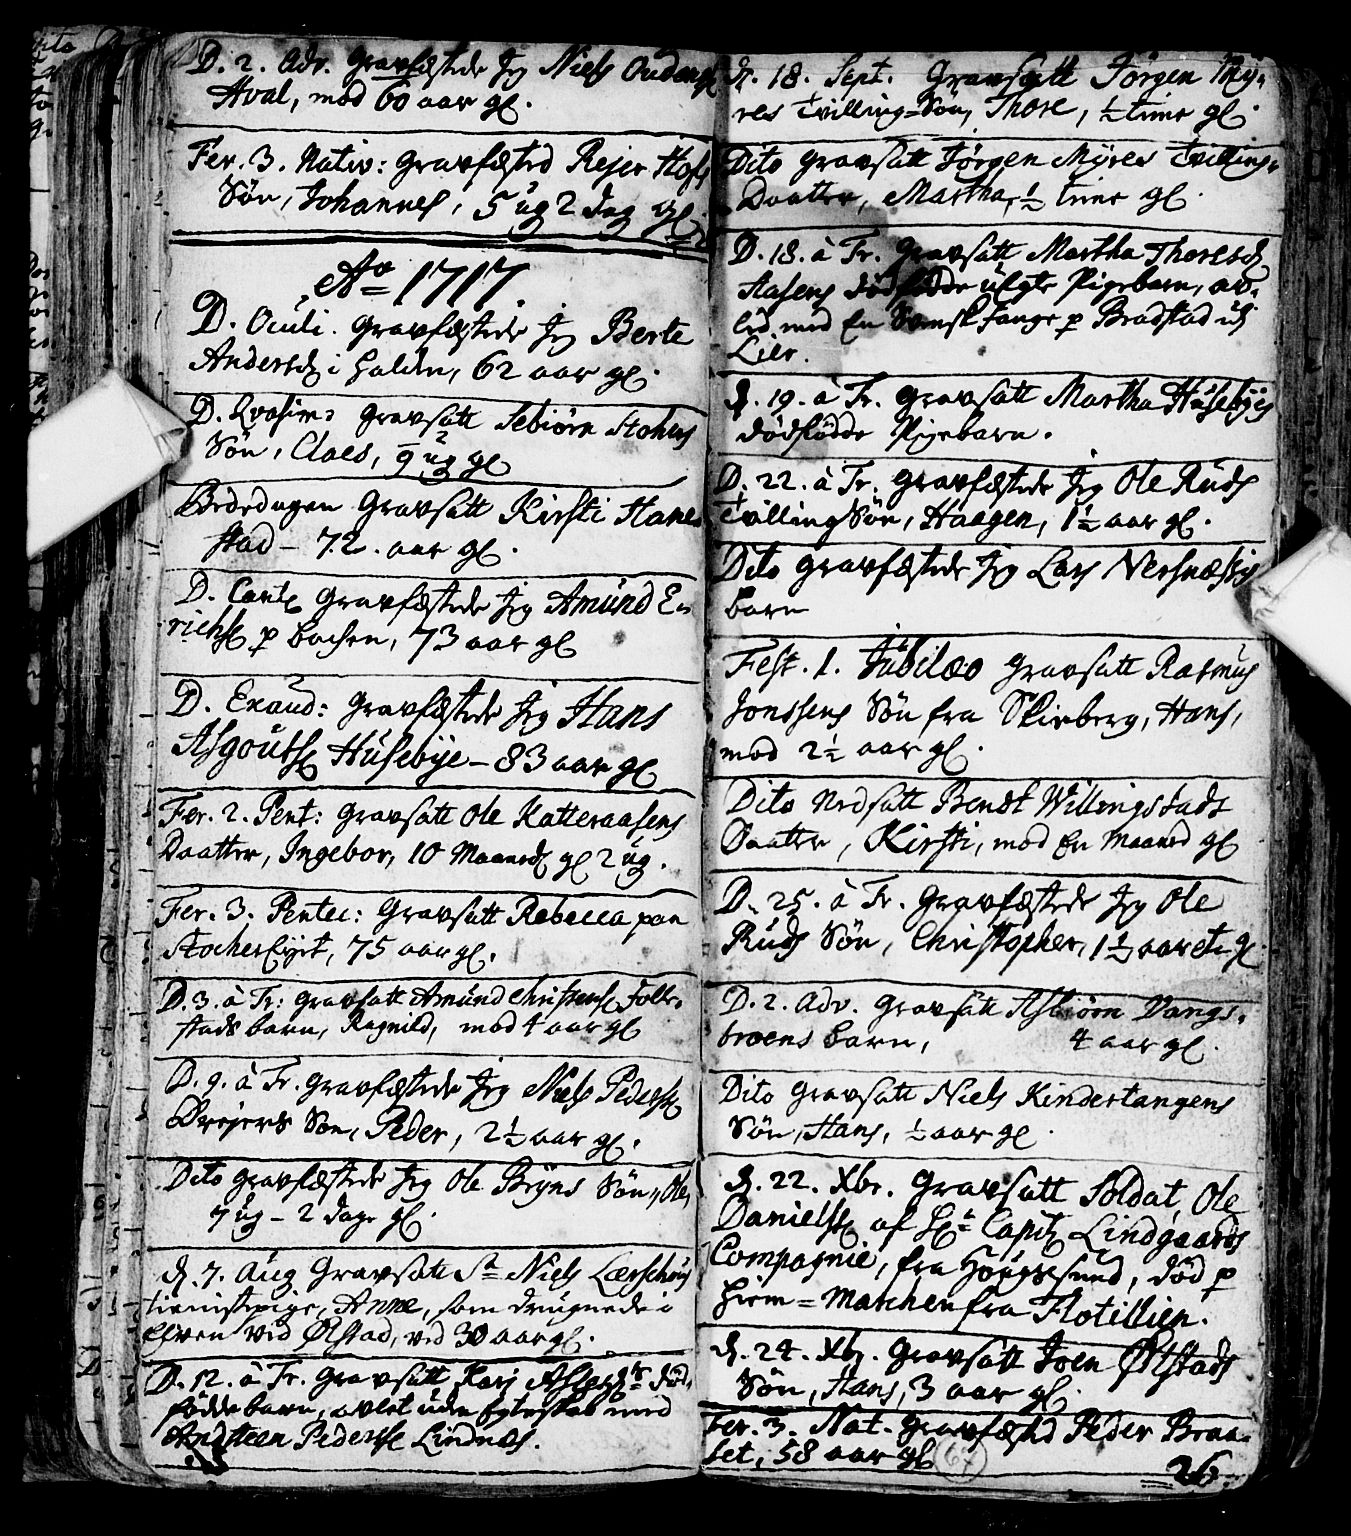 D. 2. Adv. Gravfæstede Jeg Niels Oudens
Aval, mod 60 aar gl.
Fer. 3. Nativ: Gravfæsted Rejer Hofs
Søn, Johannes, 5 ug 2 dag gl.
Ao 1717.
D. Oculi. Gravfæstede Jeg Berte
Andersd i Halden, 62 aar gl.
D. Qvasim: Gravsatt Sebiørn
Søn, Claes, 9 ug gl
Bededagen Gravsatt Kirsti Hane-
stad - 72. aar gl.
D. Cant Gravfæstede Jeg Amund E-
richs p Bachen, 73 aar gl
D. Exaud: Gravfæstede Jeg Hans
Asgouts Husebye - 83 aar gl
Fer. 2. Pent: Gravsatt Ole Katteraasens
Daatter, Ingebor, 10 Maaned gl 2 ug.
Fer. 3. Pentec: Gravsatt Rebecca paa
75 aar gl.
D. 3. à Tr: Gravsatt Amund Christens Folke-
stads barn, Ragnild, mod 4 aar gl
D. 9. à Tr. Gravfæstede Jeg Niels Peders
Drejers Søn, Peder, 2½ aar gl.
Dito gravfæstede Jeg Ole Bryns Søn, Ole,
7 ug - 2 dage gl.
d. 7. Aug Gravsatt Sr Niels
tienistpige, Anne, som drugnede i
Elven vid Østad, vid 30 aar gl.
D. 12. à Tr. Gravsatt Kari død-
fødde barn, avlet uden Egteskab med
Andsteen Peders Lindnæs.
d. 18. Sept. Gravsatt Jørgen My-
res Tvilling-Søn, Thore, ½ time gl.
Dito Gravsatt Jørgen Myres Tvilling-
Daatter, Martha, ½ time gl.
D. 18. à Tr. Gravsatt Martha Thoresd
Aasens dødfødde uegte Pigebarn, av-
led med En Svensk fange p Bradstad udj
Lier.
d. 19. à Tr. Gravsatt Martha Husebyes
dødfødde Pigebarn.
D. 22. à Tr. Gravfæstede Jeg Ole Ruds
Tvilling Søn, Haagen, 1½ aar gl.
Dito gravfæstede Jeg Lars Nersnæss
barn
Fest. 1. Jubilæo Gravsatt Rasmus
Jonssens Søn fra Skieberg, Hans,
mod 2½ aar gl.
Dito Nedsatt Bendt Willingstads
Daatter, Kirsti, mod En Maaned gl
D. 25. à Tr. Gravfæstede Jeg Ole
Ruds Søn, Christopher, 1½ aar gl
D. 2. Adv. Gravsatt Asbiørn Vangs-
broens Barn, 4 aar gl.
Dito Gravsatt Niels Kindertangens
Søn, Hans, ½ aar gl.
d. 22. Xbr. Gravsatt Soldat, Ole
Daniels af Hr Capit Lindgaards
Compagnie, fra Høugesund, død p
Hiem-Marchen fra Flotillien.
d. 24. Xbr. Gravsatt Joen Østads
Søn, Hans, 3 aar gl.
Fer. 3. Nat. Gravfæsted Peder Braa-
set, 58 aar gl
67
26.